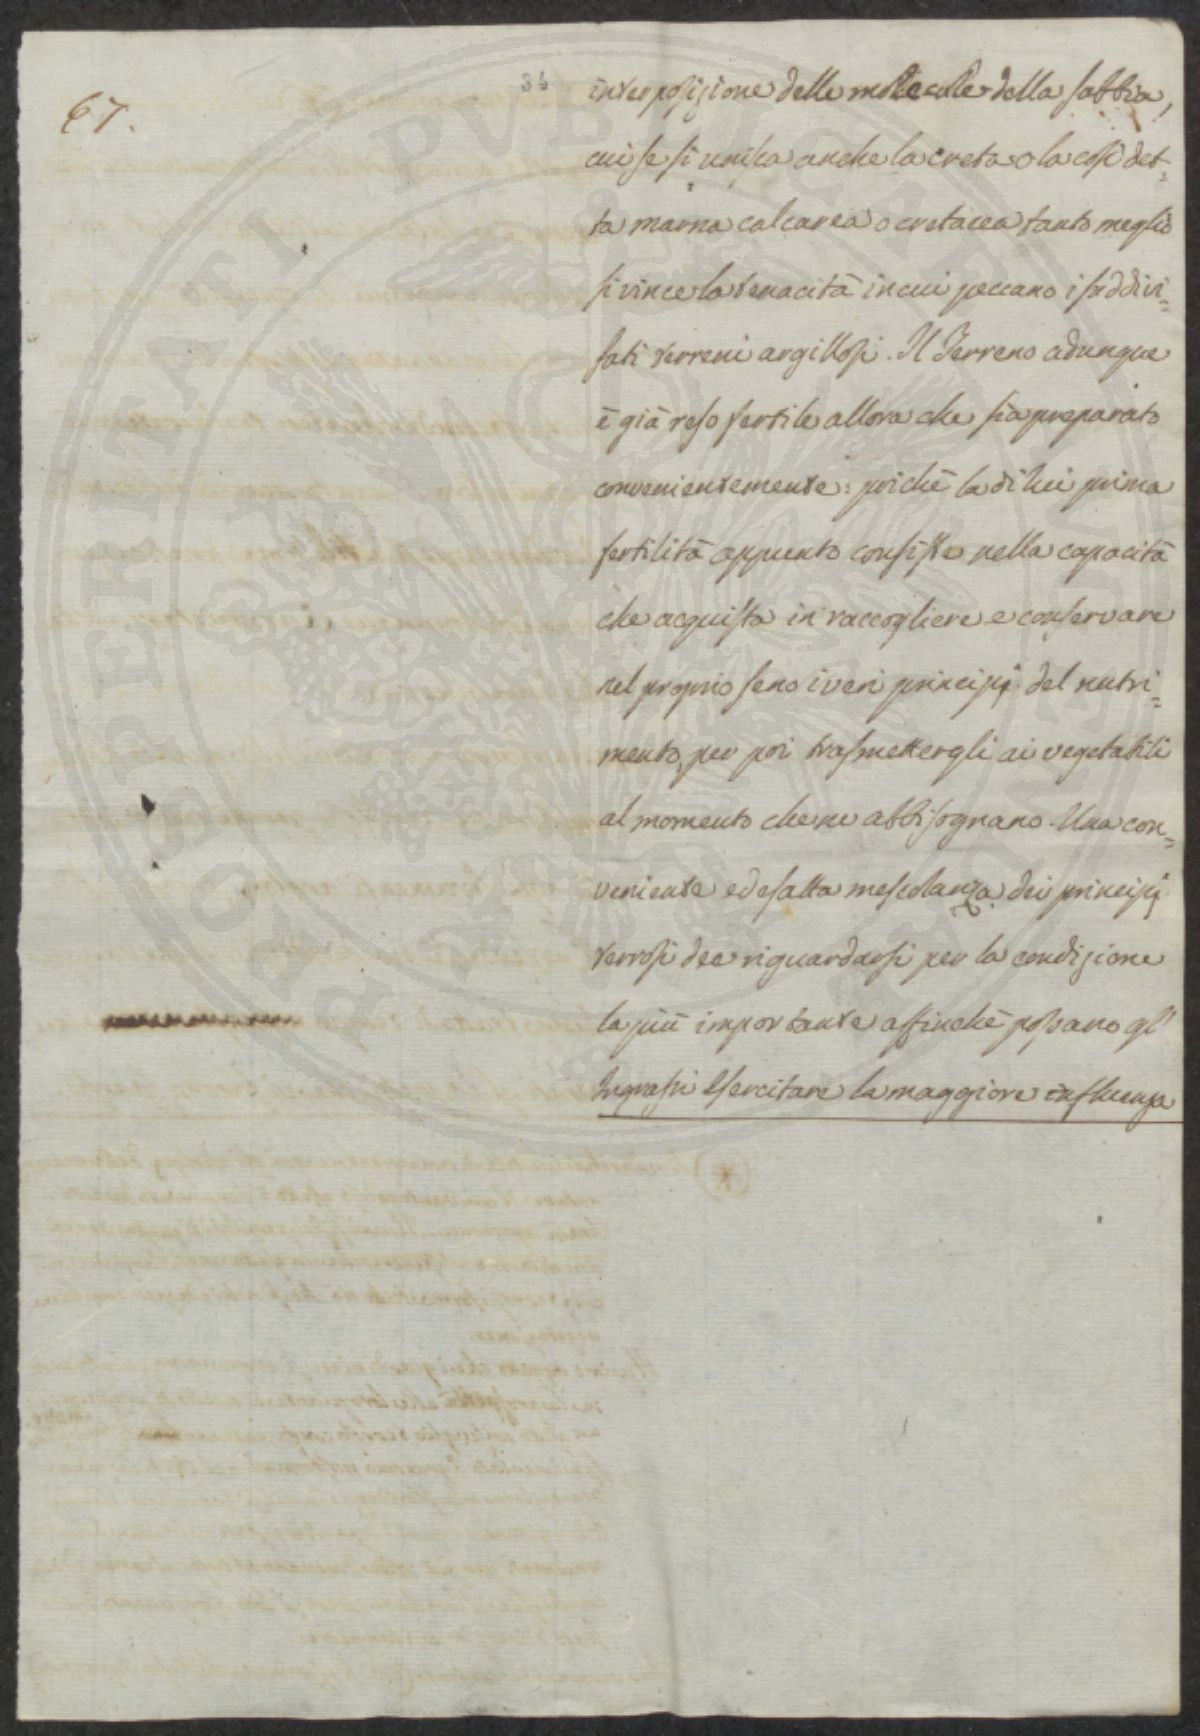 67.
34
interposizione delle molecole della sabbia,
cui se si unisca anche la creta o la così det=
ta marna calcarea o cretacea tanto meglio
si vince la tenacità in cui peccano i suddivi=
sati terreni argillosi. Il Terreno adunque
è già reso fertile allora che sia preparato
convenientemente: poichè la di lui prima
fertilità appunto consiste nella capacità
che acquista in raccogliere e conservare
nel proprio seno i veri principj del nutri=
mento per poi trasmettergli ai vegetabili
al momento che ne abbisognano. Una con=
veniente ed esatta mescolanza dei principj
terrosi dee riguardarsi per la condizione
la più importante affinchè possano gl'
Ingrassi esercitare la maggiore influenza
PROSPERITATI PUBLICAE